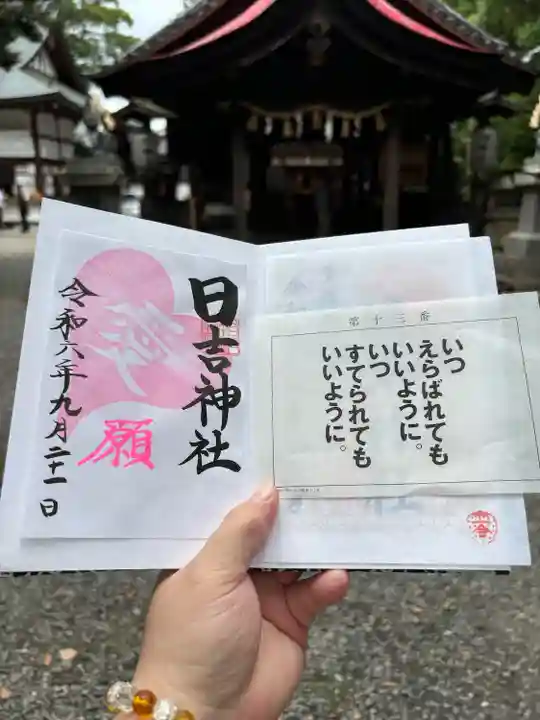 日吉神社
願
令和六年九月二十一日
第十三番
いつ
えらばれても
いいように。
いつ
すてられても
いいように。